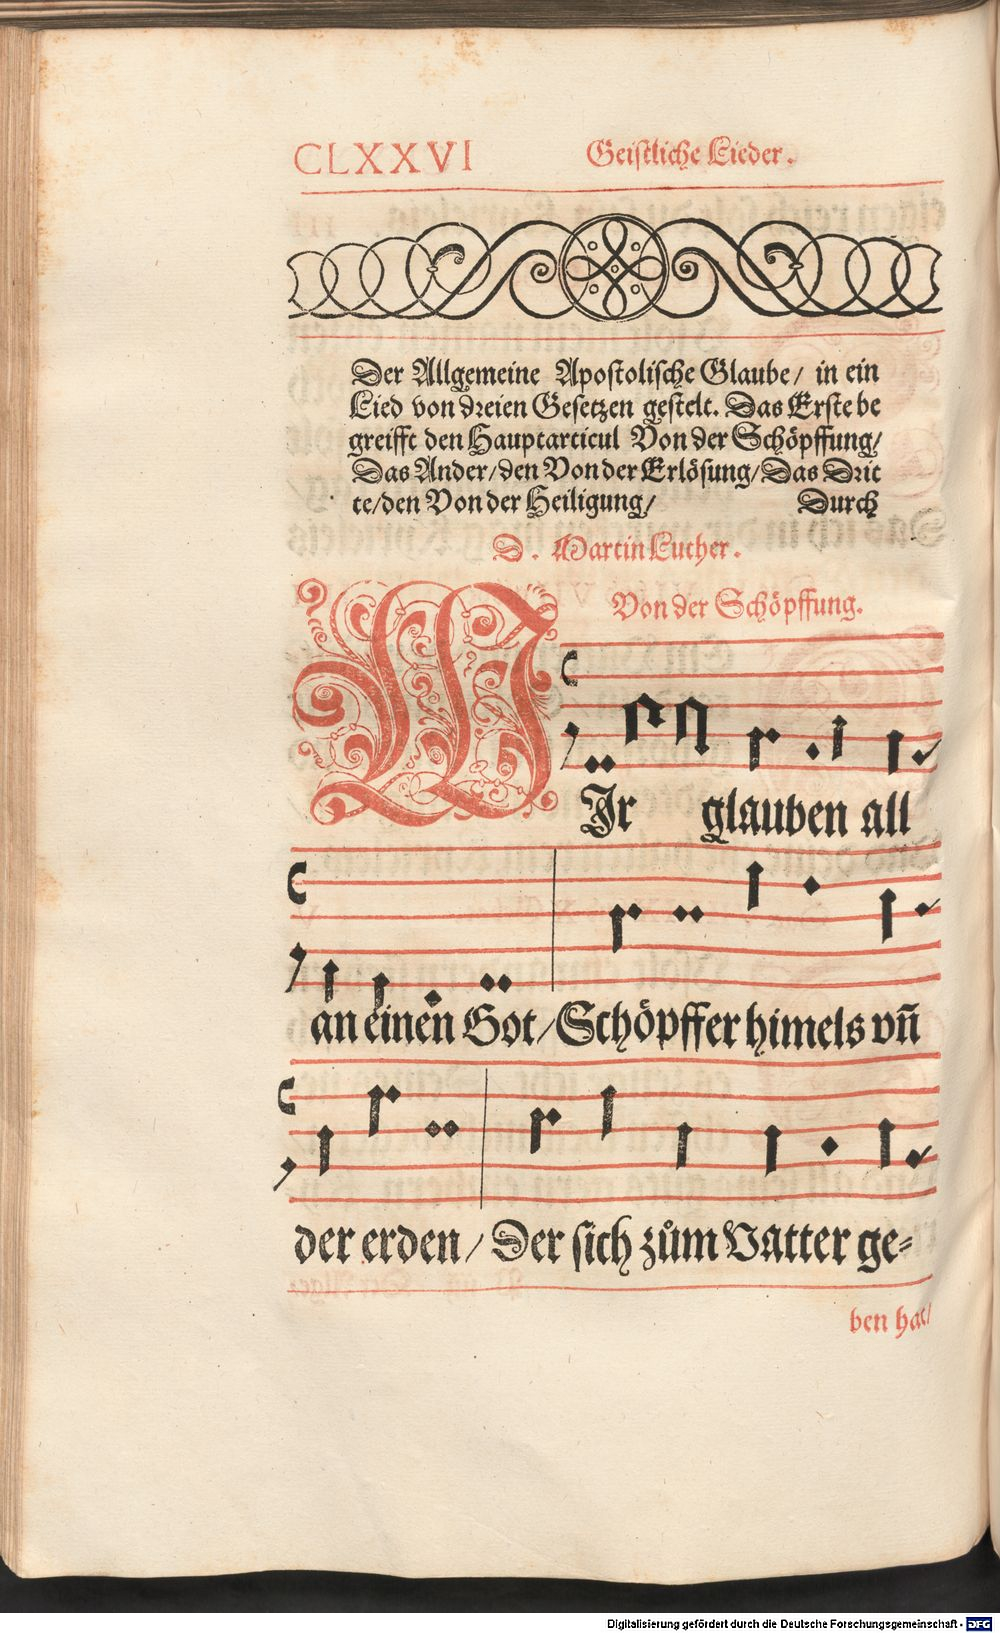 CLXXVI Geistliche Lieder.
Der Allgemeine Apostolische Glaube/ in ein
Lied von dreien Gesetzen gestelt. Das Erste be
greifft den Hauptarticul Von der Schöpffung/
Das Ander/den Von der Erlösung/Das Drit
te/den Von der Heiligung/ Durch
D. Martin Luther.
Von der Schöpffung.
WIr glauben all
an einen Got/Schöpffer himels vñ
der erden/Der sich zům Vatter ge-
ben hat/
Digitalisierung gefördert durch die Deutsche Forschungsgemeinschaft - DFG